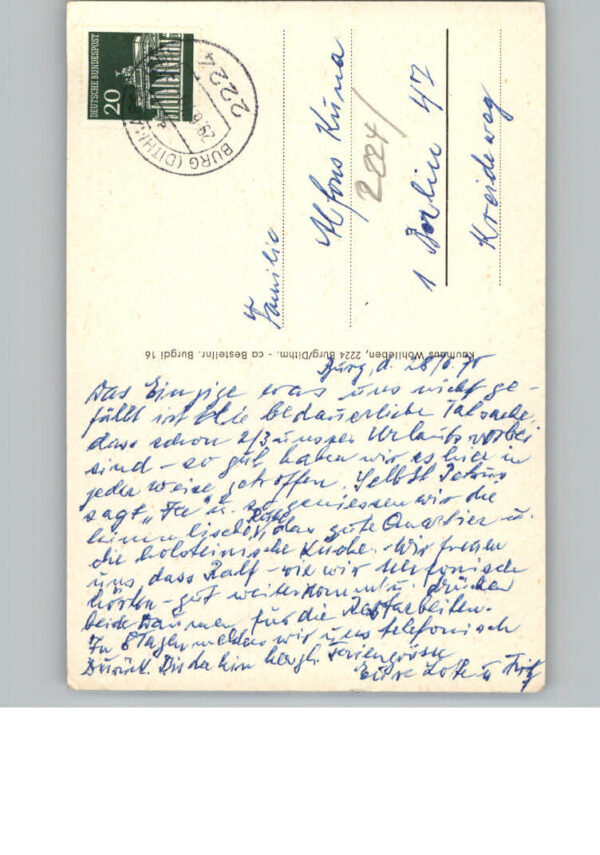 Burg, d. 28/6.70
Das Einzige was uns nicht ge-
fällt ist die bedauerliche Tatsache,
dass schon 2/3 unser Urlaubs vorbei
sind - so gut haben wir es hier in
jeder weise getroffen. Selbst Petrus
sagt „Ja" u. so geniessen wir die
himmlische Ruhe, das gute Quartier u.
die holsteinische Küche. Wir freuen
uns, dass Ralf - wie wir telefonisch
hörten - gut weiterkommt u. drücken
beide Daumen für die Restarbeiten.
In 8 Tagen melden wir uns telefonisch
zurück. Bis dahin herzl. Feriengrüsse
Eure Lotte u. Fritz
Kaufhaus Wohlleben, 2224 Burg/Dithm. - ca Bestellnr. Burgdi 16
Familie
Alfons Kuna
2224/
1 Berlin 47
Kreideweg
DEUTSCHE BUNDESPOST
20
2224
BURG (DITHM
29.6